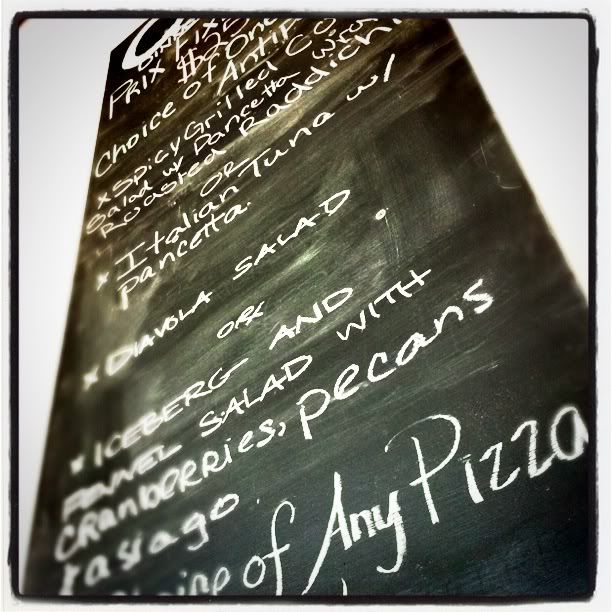 PRIX FIXE
$20
Choice of Antip
x Spicy Grilled Co
Salad w/ Pancetta Wra
Roasted Raddichi
OR
x Italian Tuna w/
pancetta.
x DIAVOLA SALAD.
OR
x ICEBERG AND
FENNEL SALAD WITH
CRANBERRIES, pecans
+ asiago.
of Any Pizza